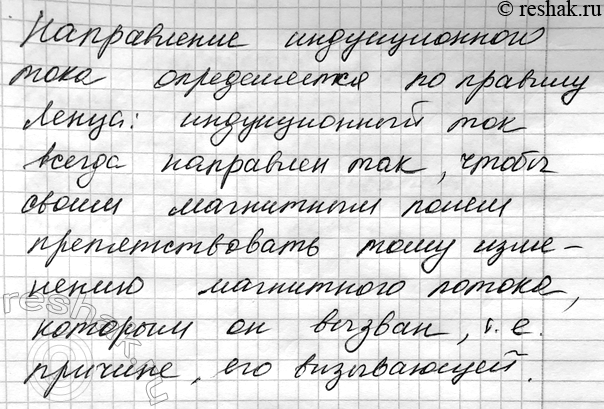 © reshak.ru
Направление индукционного
тока определяется по правилу
Ленца: индукционный ток
всегда направлен так, чтобы
своим магнитным полем
препятствовать тому изме-
нению магнитного потока,
которым он вызван, т.е.
причине, его вызывающей.
reshak.ru